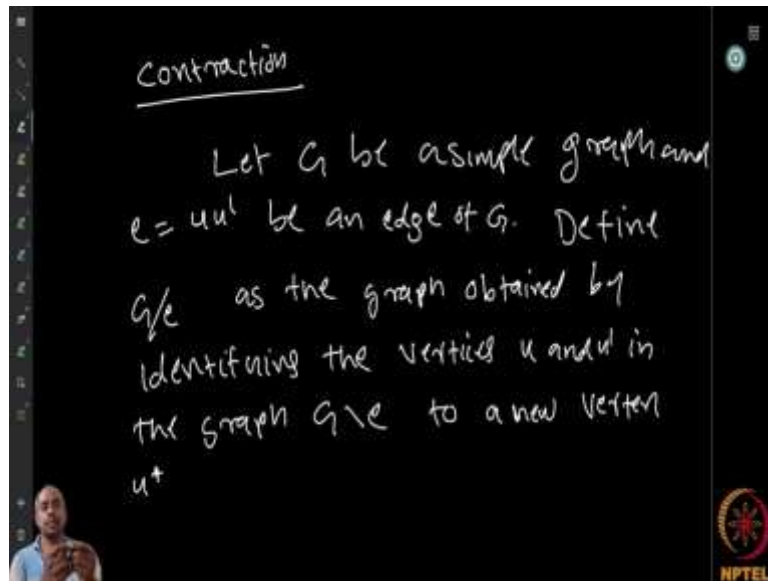 Contraction
Let G be a simple graph and
e = uu' be an edge of G. Define
G/e as the graph obtained by
identifying the vertices u and u' in
the graph G\e to a new vertex
u*
NPTEL